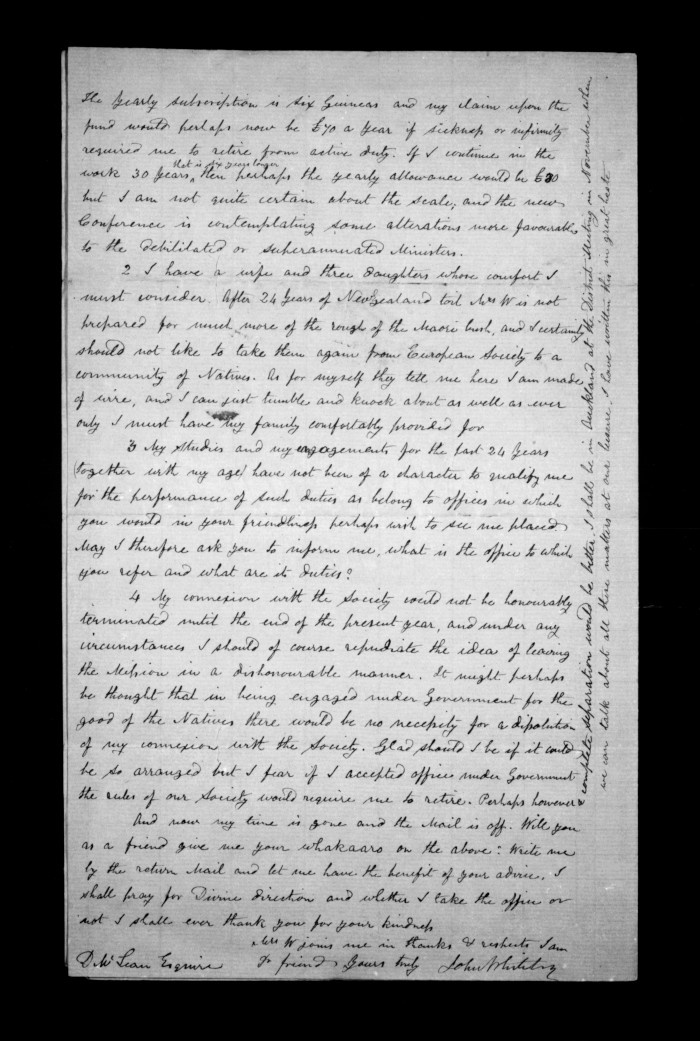 The Yearly subscription is six Guineas and my claim upon the
fund would perhaps now be £70 a Year if sickness or infirmity
required me to retire from active duty. If I continue in the
that is six years longer
work 30 Years, then perhaps the yearly allowance would be £80
but I am not quite certain about the scale, and the new
Conference is contemplating some alterations more favourable
to the debilitated or superannuated Ministers.
2 I have a wife and three daughters whose comfort I
must consider. After 24 Years of New Zealand toil Mrs W is not
prepared for much more of the rough of the Maori bush, and I certainly
should not like to take them again from European Society to a
community of Natives. As for myself they tell me here I am made
of wire, and I can just tumble and knock about as well as ever
only I must have my family comfortably provided for
3 My studies and my engagements for the last 24 Years
(together with my age) have not been of a character to qualify me
for the performance of such duties as belong to offices in which
you would in your friendliness perhaps wish to see me placed
May I therefore ask you to inform me, what is the office to which
you refer and what are its duties?
4 My connexion with the Society could not be honourably
terminated until the end of the present year, and under any
circumstances I should of course repudiate the idea of leaving
the Mission in a dishonourable manner. It might perhaps
be thought that in being engaged under Government for the
good of the Natives there would be no necessity for a dissolution
of my connexion with the Society. Glad should I be if it could
be so arranged but I fear if I accepted office under Government
the rules of our Society would require me to retire. Perhaps however a
complete separation would be better. I shall be in Auckland at the District Meeting in November when
we can talk about all these matters at our leisure. I have written this in great haste
And now my time is gone and the Mail is off. Will you
as a friend give me your whakaaro on the above: Write me
by the return Mail and let me have the benefit of your advice. I
shall pray for Divine direction and whether I take the office or
not I shall ever thank you for your kindness
Mrs W joins me in thanks & respects I am
Dr friend Yours truly John Whiteley
D McLean Esquire